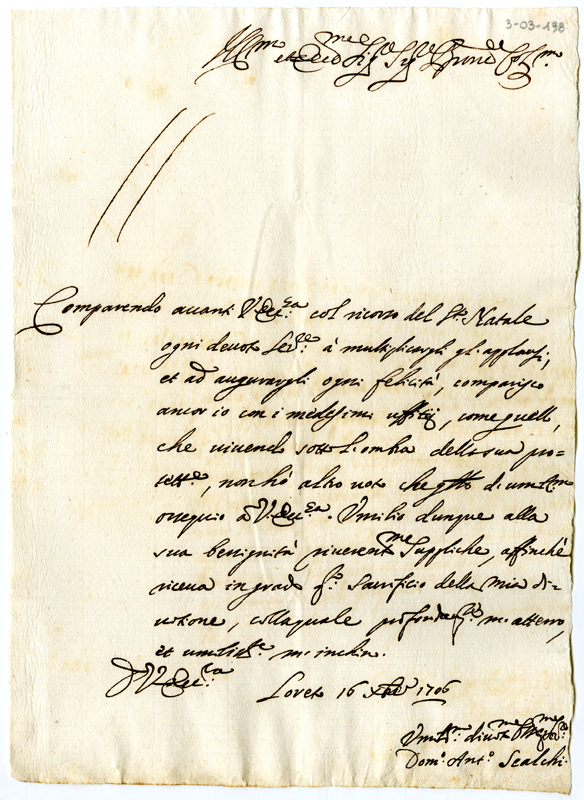 3-03-198
Ill.mo et Ecc.mo Sig.re Sig.re Prone Col.mo
Comparendo avanti V. Ecc.za col ricorso del S.to Natale
ogni devoto Ser.re à multiplicargli gl'applausi,
et ad augurargli ogni felicità, comparisco
ancor io con i medesimi uffitij, come quello,
che vivendo sotto l'ombra della sua pro=
tett.ne, non hò altro voto che q.llo di um.mo
ossequio à V. Ecc.za. Umilio dunque alla
sua benignità riverent.me suppliche, affinché
riceva in grado q.to Sacrificio della mia di=
votione, colla quale profonda m. m'atterro,
et umiliss.te m'inchin.
D V. Ecc.za
Loreto 16 Xbre 1706
Um.mo divot.mo
Dom.o Ant.o Scalchi